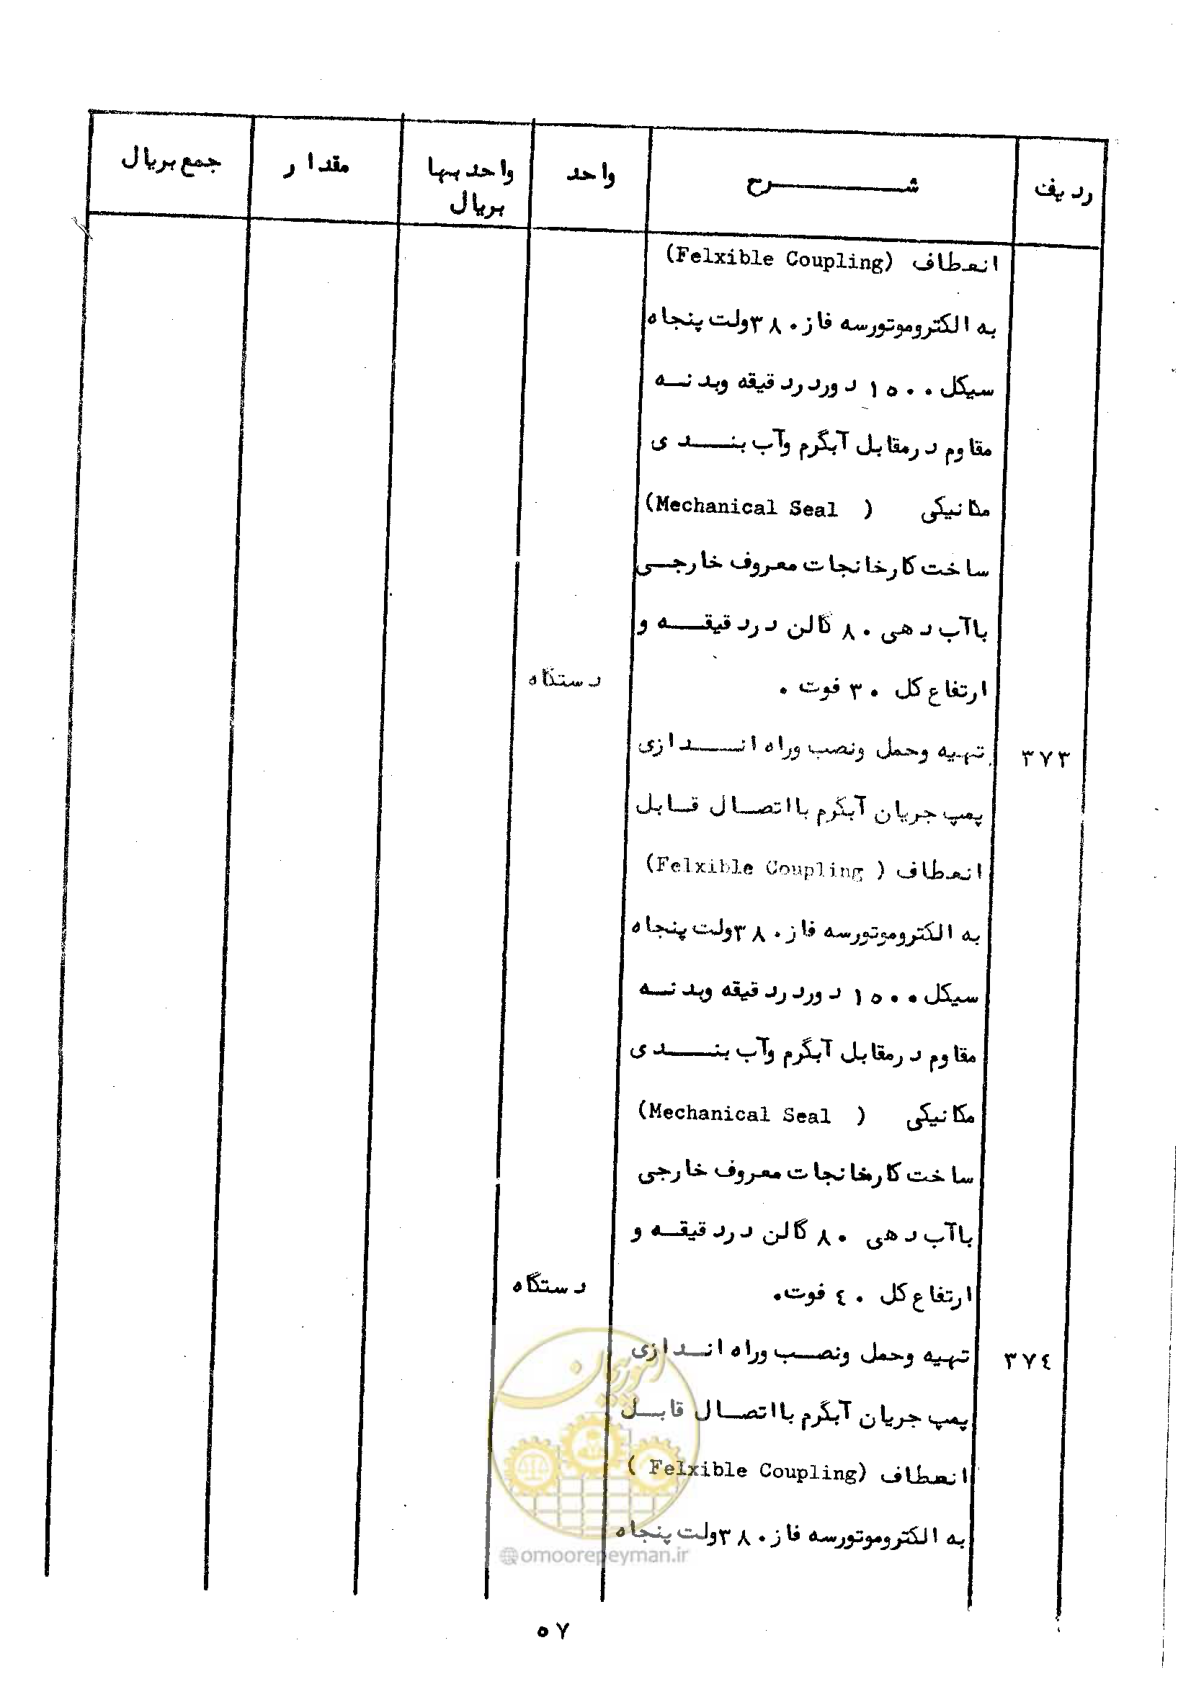 ردیف
شرح
واحد
واحد بها
بریال
مقدار
جمع بریال
انعطاف (Felxible Coupling)
به الکتروموتورسه فاز ۳۸۰ ولت پنجاه
سیکل ۱۵۰۰ دور در دقیقه وبدنه
مقاوم درمقابل آبگرم وآب بندی
مکانیکی (Mechanical Seal)
ساخت کارخانجات معروف خارجی
باآب دهی ۸۰ گالن در دقیقه و
ارتفاع کل ۳۰ فوت .
دستگاه
۳۷۳
تهیه وحمل ونصب وراه اندازی
پمپ جریان آبگرم بااتصال قابل
انعطاف (Felxible Coupling)
به الکتروموتورسه فاز ۳۸۰ ولت پنجاه
سیکل ۱۵۰۰ دور در دقیقه وبدنه
مقاوم درمقابل آبگرم وآب بندی
مکانیکی (Mechanical Seal)
ساخت کارخانجات معروف خارجی
باآب دهی ۸۰ گالن در دقیقه و
ارتفاع کل ۴۰ فوت.
دستگاه
۳۷۴
تهیه وحمل ونصب وراه اندازی
پمپ جریان آبگرم بااتصال قابل
انعطاف (Felxible Coupling)
به الکتروموتورسه فاز ۳۸۰ ولت پنجاه
امور پیمان
@omoorepeyman.ir
۵۷